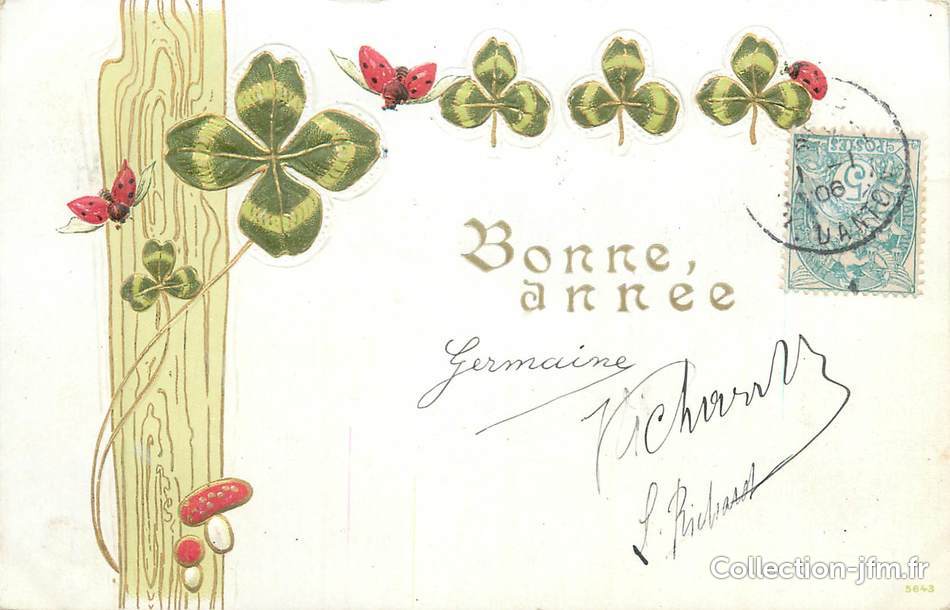 POSTES
5
06
DANTO
Bonne,
année
Germaine
Richard
L. Richard
Collection-jfm.fr
5643